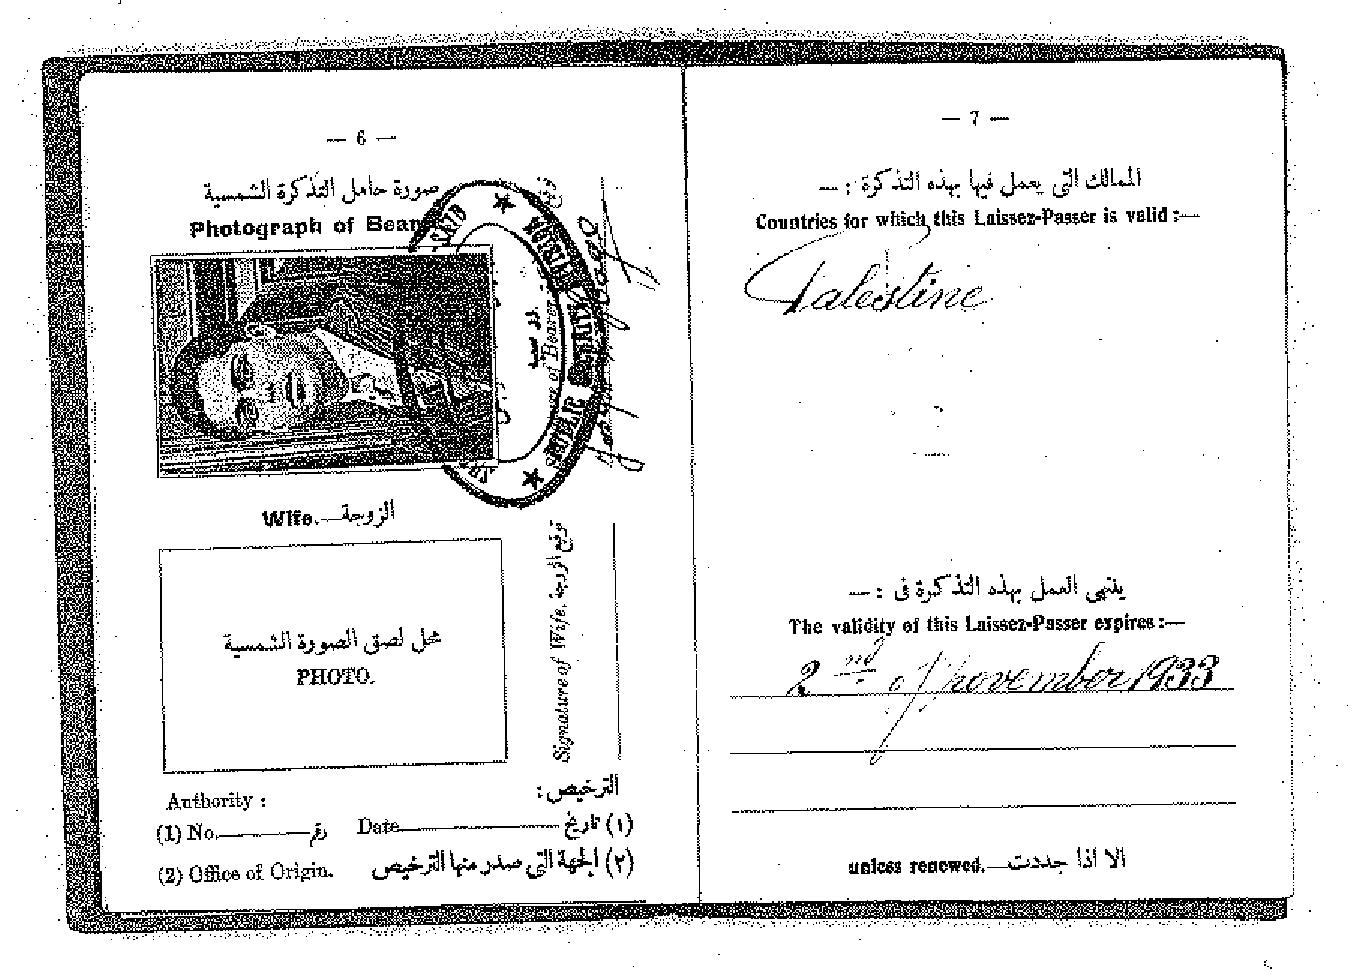 — 6 —
صورة حامل التذكرة الشمسية
Photograph of Bearer
of Bearer
Wife.—الزوجة
توقيع الزوجة
Signature of Wife.
محل لصق الصورة الشمسية
PHOTO.
Authority :
الترخيص :
(1) No. رقم Date تاريخ (١)
(2) Office of Origin. الجهة التى صدر منها الترخيص (٢)
— 7 —
الممالك التى يعمل فيها بهذه التذكرة : —
Countries for which this Laissez-Passer is valid :—
Palestine
ينتهى العمل بهذه التذكرة فى : —
The validity of this Laissez-Passer expires :—
2nd of November 1933
unless renewed.—الا اذا جددت